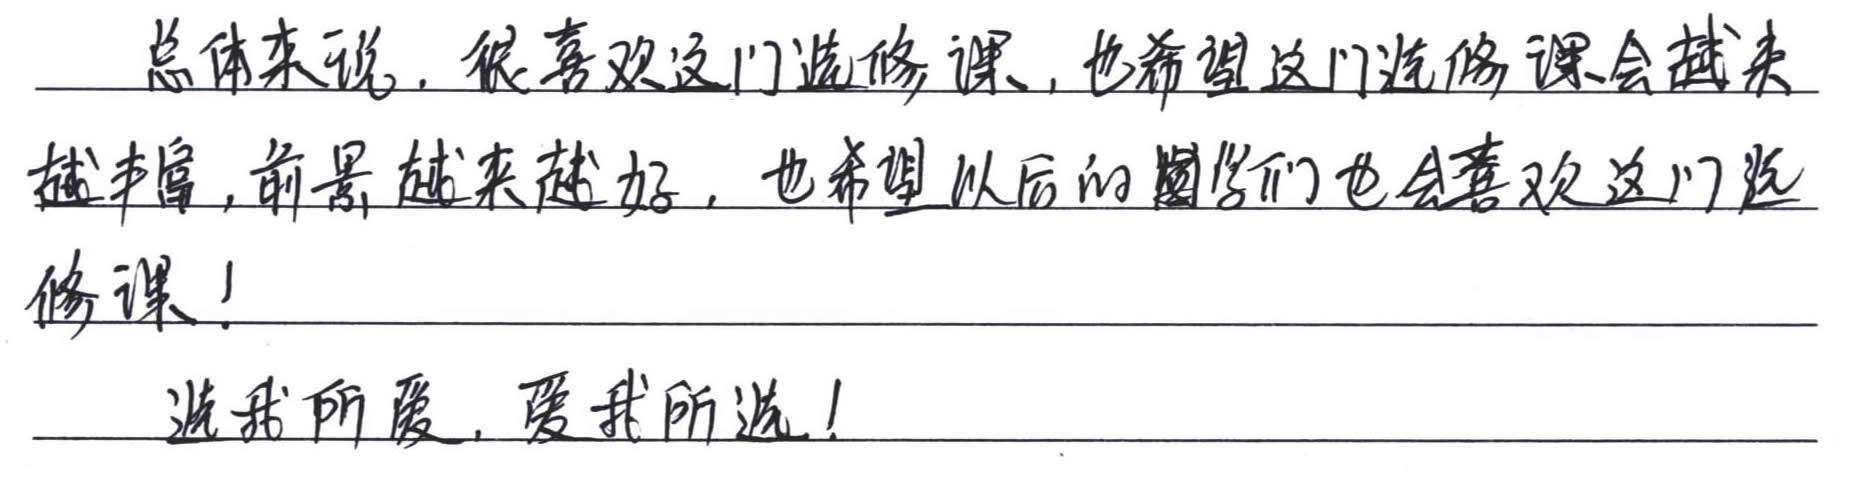 总体来说，很喜欢这门选修课，也希望这门选修课会越来
越丰富，前景越来越好，也希望以后的同学们也会喜欢这门选
修课！
选我所爱，爱我所选！